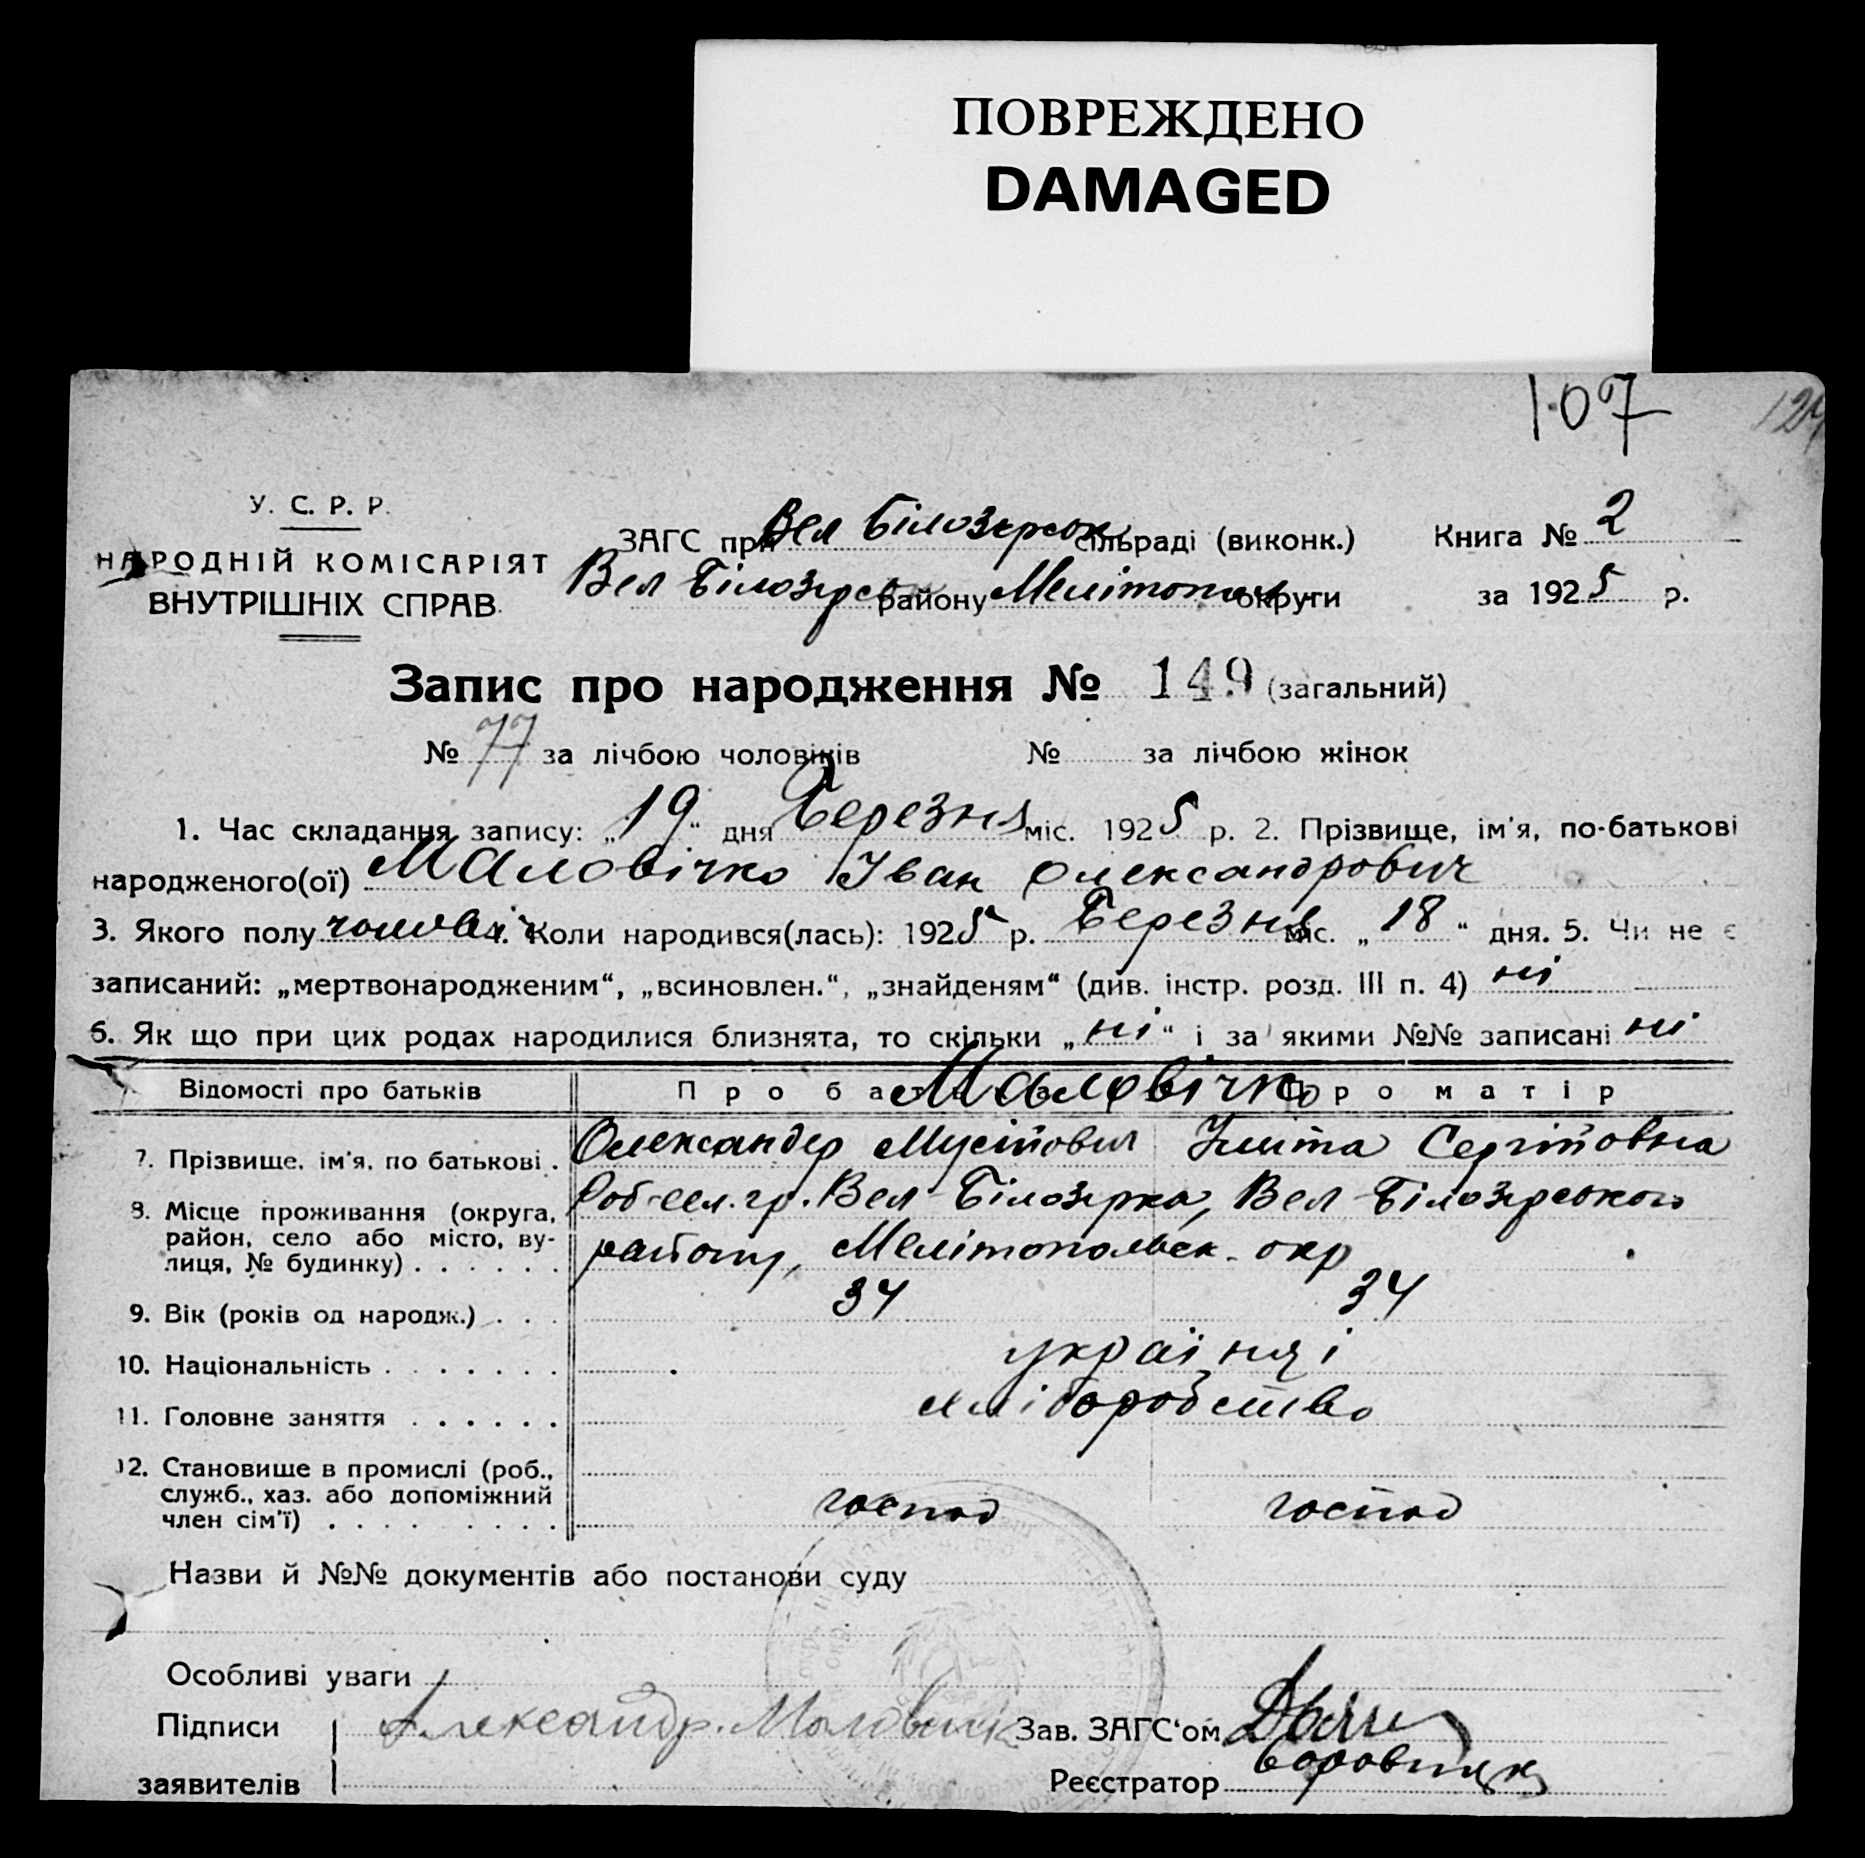 ПОВРЕЖДЕНО
DAMAGED
107
У. С. Р. Р.
НАРОДНІЙ КОМІСАРІЯТ
ВНУТРІШНІХ СПРАВ
ЗАГС при Вел Білозерськ сільраді (виконк.) Книга № 2
Вел Білозерс району Мелітопол округи за 1925 р.
Запис про народження № 149 (загальний)
№ 77 за лічбою чоловіків № за лічбою жінок
1. Час складання запису: „19“ дня Березня міс. 1925 р. 2. Прізвище, ім'я, по-батькові
народженого(ої) Маловічко Іван Олександрович
3. Якого полу чоловіч 4. Коли народився(лась): 1925 р. Березня міс. „18“ дня. 5. Чи не є
записаний: „мертвонародженим“, „всиновлен.“, „знайденям“ (див. інстр. розд. III п. 4) ні
6. Як що при цих родах народилися близнята, то скільки „ні“ і за якими №№ записані ні
Відомості про батьків Про батька Маловічко Про матір
7. Прізвище, ім'я, по батькові . Олександер Мусійович Сергійовна
8. Місце проживання (округа, район, село або місто, вулиця, № будинку) . . . . . . Вел-Білозерка, Вел-Білозерського
району, Мелітопольск. окр
9. Вік (років од народж.) . . . 34 34
10. Національність . . . . . . . українці
11. Головне заняття . . . . . . хліборобство
12. Становище в промислі (роб., служб., хаз. або допоміжний член сім'ї) . . . . . . . . господ господ
Назви й №№ документів або постанови суду
Особливі уваги
Підписи Александр. Маловичк Зав. ЗАГС'ом
заявителів Реєстратор